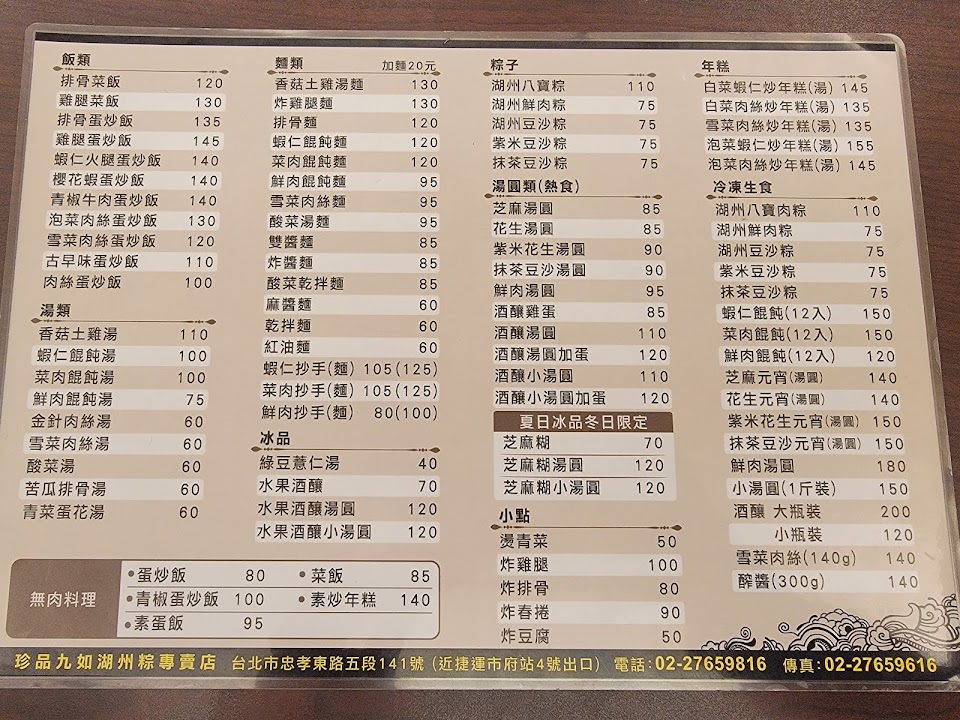 飯類
排骨菜飯 120
雞腿菜飯 130
排骨蛋炒飯 135
雞腿蛋炒飯 145
蝦仁火腿蛋炒飯 140
櫻花蝦蛋炒飯 140
青椒牛肉蛋炒飯 140
泡菜肉絲蛋炒飯 130
雪菜肉絲蛋炒飯 120
古早味蛋炒飯 110
肉絲蛋炒飯 100
湯類
香菇土雞湯 110
蝦仁餛飩湯 100
菜肉餛飩湯 100
鮮肉餛飩湯 75
金針肉絲湯 60
雪菜肉絲湯 60
酸菜湯 60
苦瓜排骨湯 60
青菜蛋花湯 60
麵類 加麵20元
香菇土雞湯麵 130
炸雞腿麵 130
排骨麵 120
蝦仁餛飩麵 120
菜肉餛飩麵 120
鮮肉餛飩麵 95
雪菜肉絲麵 95
酸菜湯麵 95
雙醬麵 85
炸醬麵 85
酸菜乾拌麵 85
麻醬麵 60
乾拌麵 60
紅油麵 60
蝦仁抄手(麵) 105(125)
菜肉抄手(麵) 105(125)
鮮肉抄手(麵) 80(100)
冰品
綠豆薏仁湯 40
水果酒釀 70
水果酒釀湯圓 120
水果酒釀小湯圓 120
粽子
湖州八寶粽 110
湖州鮮肉粽 75
湖州豆沙粽 75
紫米豆沙粽 75
抹茶豆沙粽 75
湯圓類(熱食)
芝麻湯圓 85
花生湯圓 85
紫米花生湯圓 90
抹茶豆沙湯圓 90
鮮肉湯圓 95
酒釀雞蛋 85
酒釀湯圓 110
酒釀湯圓加蛋 120
酒釀小湯圓 110
酒釀小湯圓加蛋 120
夏日冰品冬日限定
芝麻糊 70
芝麻糊湯圓 120
芝麻糊小湯圓 120
小點
燙青菜 50
炸雞腿 100
炸排骨 80
炸春捲 90
炸豆腐 50
年糕
白菜蝦仁炒年糕(湯) 145
白菜肉絲炒年糕(湯) 135
雪菜肉絲炒年糕(湯) 135
泡菜蝦仁炒年糕(湯) 155
泡菜肉絲炒年糕(湯) 145
冷凍生食
湖州八寶肉粽 110
湖州鮮肉粽 75
湖州豆沙粽 75
紫米豆沙粽 75
抹茶豆沙粽 75
蝦仁餛飩(12入) 150
菜肉餛飩(12入) 150
鮮肉餛飩(12入) 120
芝麻元宵(湯圓) 140
花生元宵(湯圓) 140
紫米花生元宵(湯圓) 150
抹茶豆沙元宵(湯圓) 150
鮮肉湯圓 180
小湯圓(1斤裝) 150
酒釀 大瓶裝 200
小瓶裝 120
雪菜肉絲(140g) 140
醡醬(300g) 140
無肉料理
•蛋炒飯 80 •菜飯 85
•青椒蛋炒飯 100 •素炒年糕 140
•素蛋飯 95
珍品九如湖州粽專賣店 台北市忠孝東路五段141號(近捷運市府站4號出口) 電話:02-27659816 傳真:02-27659616